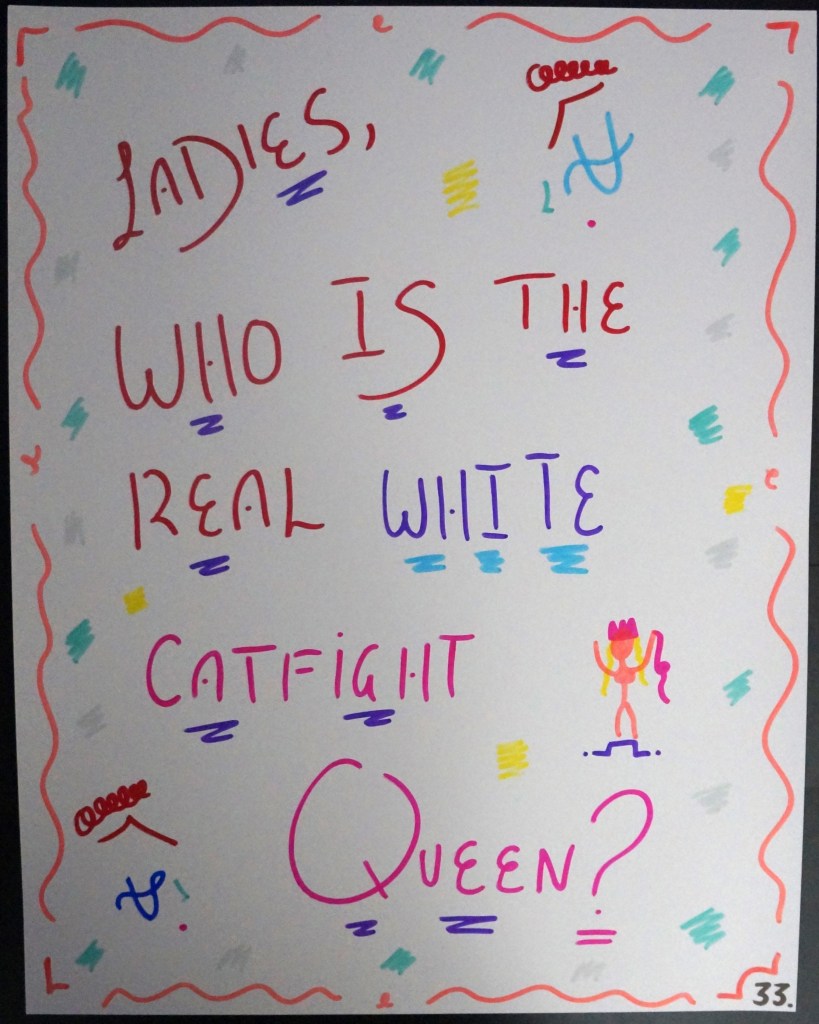 LADIES,
WHO IS THE
REAL WHITE
CATFIGHT
QUEEN?
33.